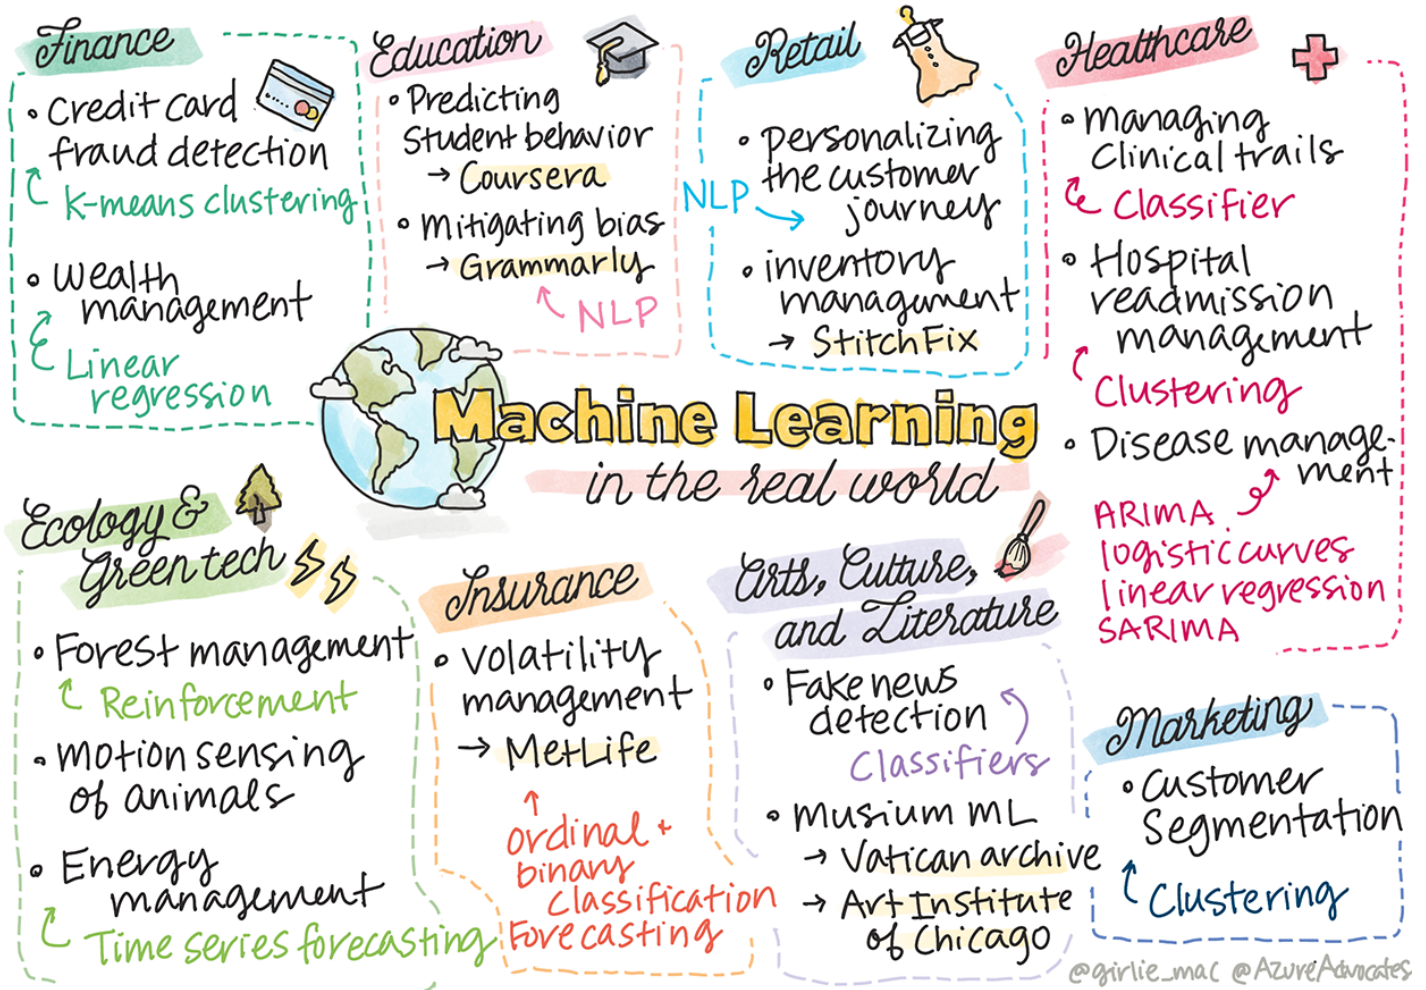 Finance
• Credit card
fraud detection
K-means clustering
• Wealth
management
Linear
regression
Education
• Predicting
Student behavior
→ Coursera
• Mitigating bias
→ Grammarly
NLP
Retail
• personalizing
the customer
journey
NLP
• inventory
managument
→ StitchFix
Healthcare
• managing
clinical trails
Classifier
• Hospital
readmission
management
Clustering
• Disease manage-
ment
ARIMA
logistic curves
linear regression
SARIMA
Machine Learning
in the real world
Ecology &
Green tech
• Forest management
Reinforcement
• motion sensing
of animals
• Energy
management
Time series forecasting
Insurance
• Volatility
management
→ MetLife
ordinal +
binary
classification
Forecasting
Arts, Culture,
and Literature
• Fake news
detection
Classifiers
• Musium ML
→ Vatican archive
→ Art Institute
of Chicago
Marketing
• Customer
Segmentation
Clustering
@girlie_mac @AzureAdvocates